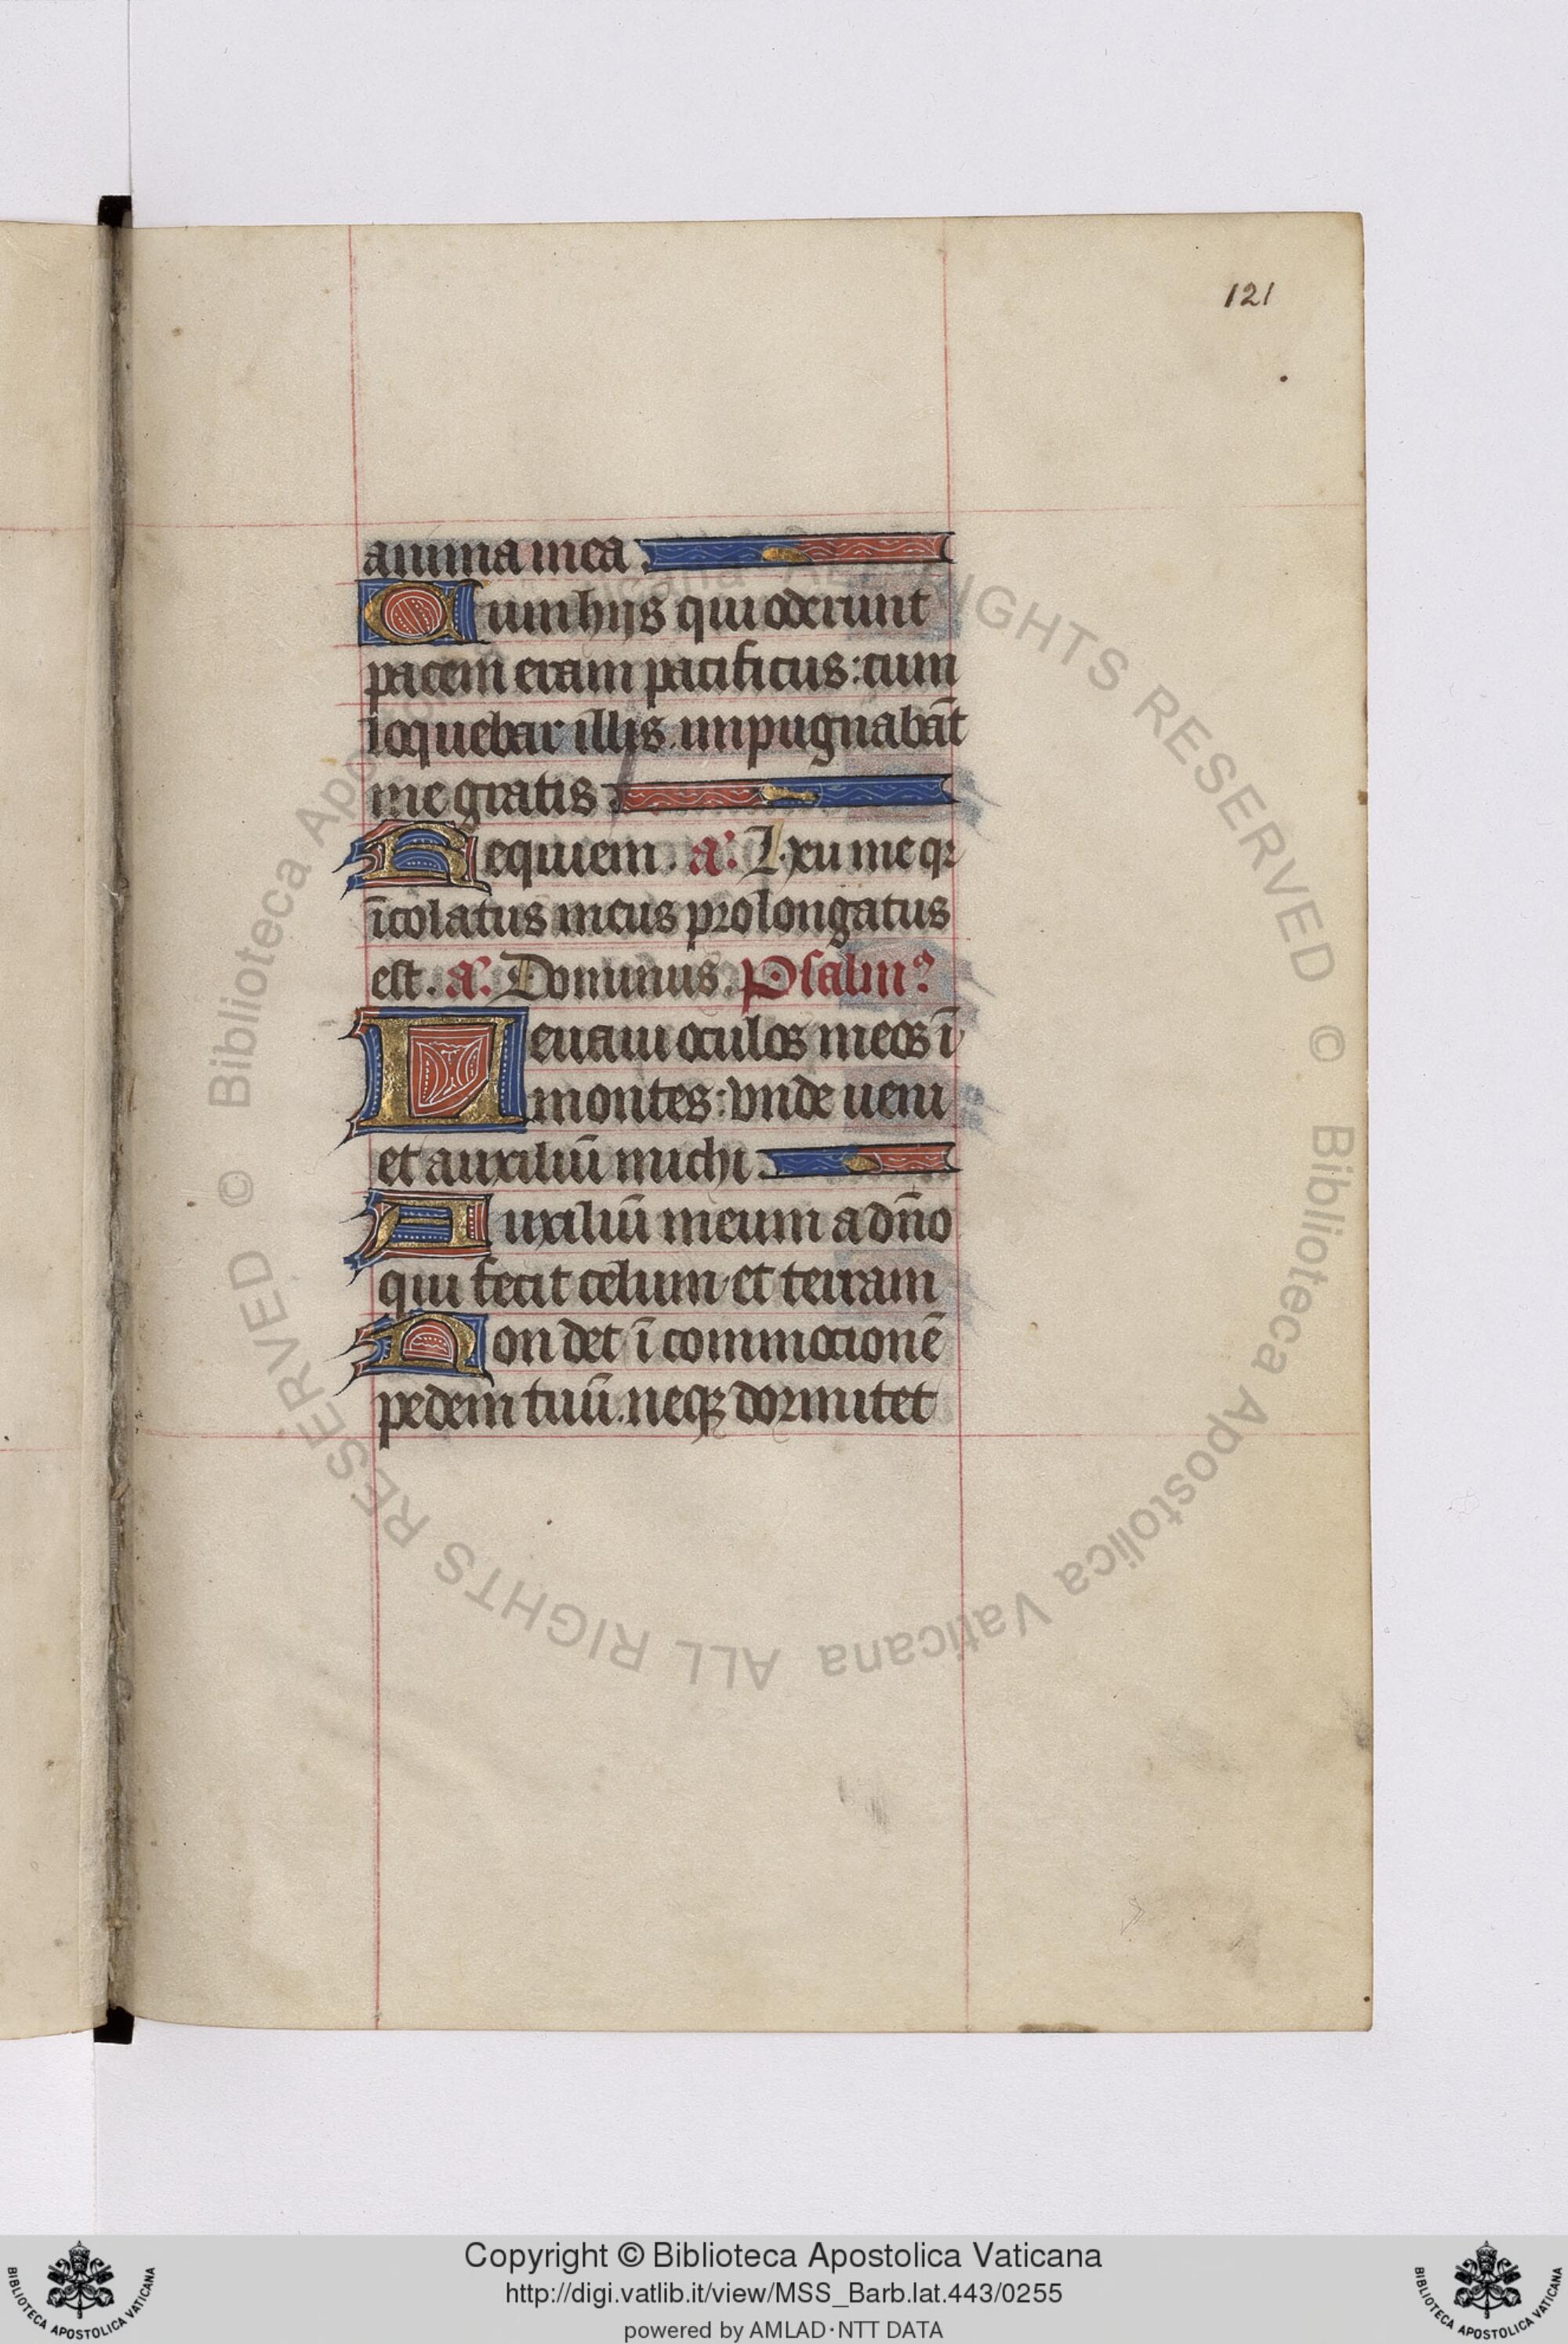 121
anima mea.
Cum hijs qui oderunt
pacem eram pacificus: cum
loquebar illis. impugnabāt
me gratis.
Requiem. a᷒. Heu me qꝛ
īcolatus meus prolongatus
est. a᷒. Dominus. Psalmꝰ
Leuaui oculos meos ī
montes: vnde ueni
et auxiliū michi.
Auxiliū meum a dn̄o
qui fecit celum et terram
Non det ī commocionē
pedem tuū. neqꝫ dormitet
© Biblioteca Apostolica Vaticana ALL RIGHTS RESERVED © Biblioteca Apostolica Vaticana ALL RIGHTS RESERVED
Copyright © Biblioteca Apostolica Vaticana
http://digi.vatlib.it/view/MSS_Barb.lat.443/0255
powered by AMLAD·NTT DATA
BIBLIOTECA APOSTOLICA VATICANA
BIBLIOTECA APOSTOLICA VATICANA